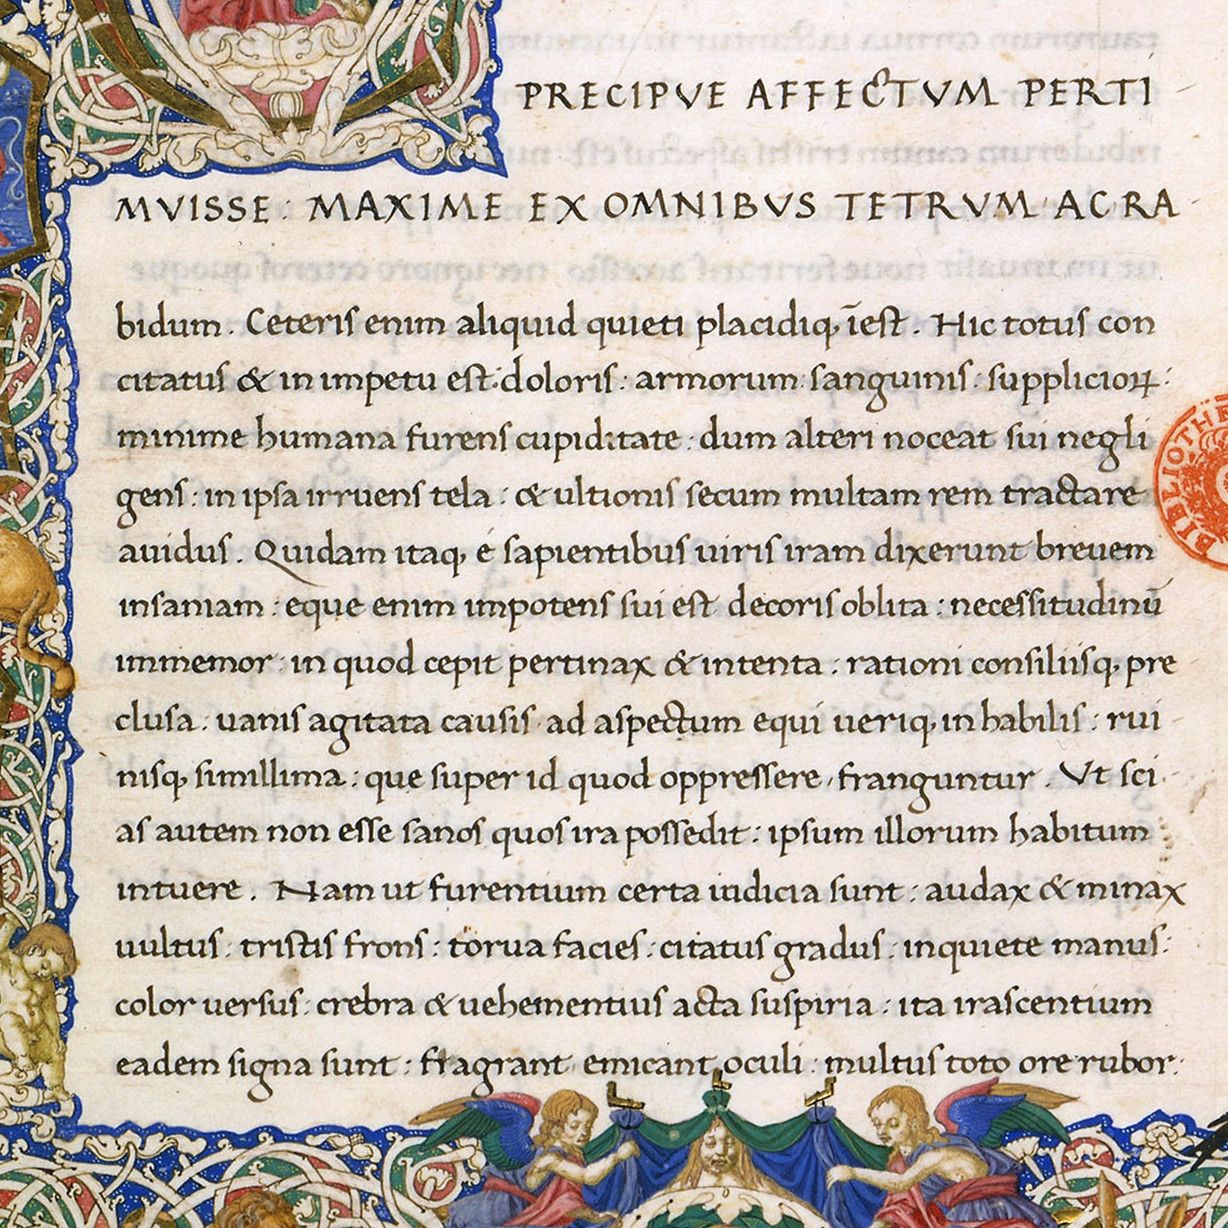 PRECIPVE AFFECTVM PERTI
MVISSE: MAXIME EX OMNIBVS TETRVM AC RA
bidum. Ceteris enim aliquid quieti placidiq; īest. Hic totus con
citatus & in impetu est: doloris: armorum: sanguinis: supplicioꝝ:
minime humana furens cupiditate: dum alteri noceat sui negli
gens: in ipsa irruens tela: & ultionis secum multam rem tractare
auidus. Quidam itaq; é sapientibus uiris iram dixerunt breuem
insaniam: eque enim impotens sui est decoris oblita: necessitudinū
immemor: in quod cepit pertinax & intenta: rationi consiliisq; pre
clusa: uanis agitata causis ad aspectum equi ueriq; inhabilis: rui
nisq; simillima: que super id quod oppressere, franguntur. Vt sci
as autem non esse sanos quos ira possedit: ipsum illorum habitum
intuere. Nam ut furentium certa iudicia sunt: audax & minax
uultus: tristis frons: torua facies: citatus gradus: inquiete manus:
color uersus: crebra & uehementius acta suspiria: ita irascentium
eadem signa sunt: flagrant emicant oculi: multus toto ore rubor:
BIBLIOTHE